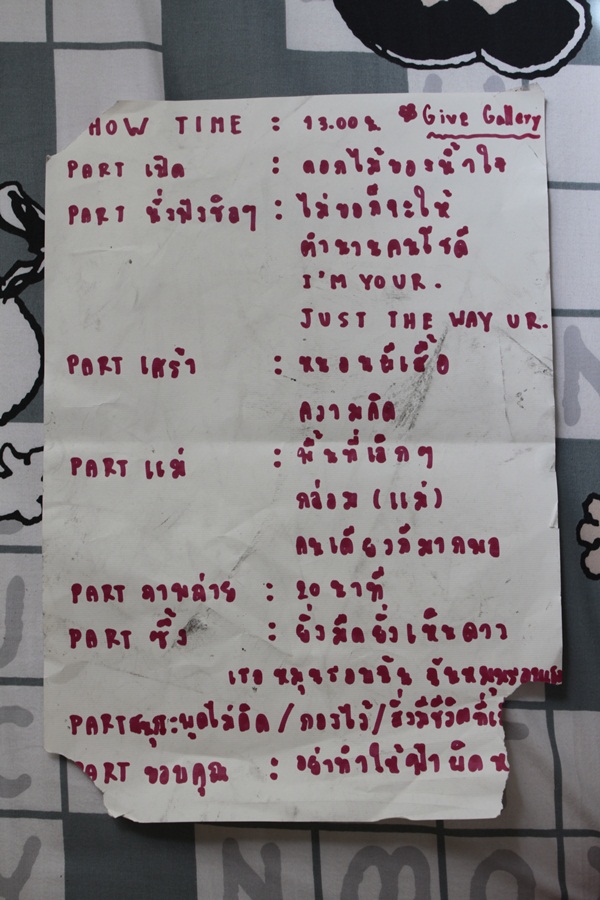 HOW TIME : 13.00 น. Give Gallery
PART เปิด : ดอกไม้ของน้ำใจ
PART นั่งฟังชิลๆ : ไม่ขอก็จะให้
ตำนานคนโซดี
I'M YOUR.
JUST THE WAY UR.
PART เศร้า : หนอนผีเสื้อ
ความคิด
PART แม่ : พื้นที่เล็กๆ
กล่อม (แม่)
คนเดียวก็มากพอ
PART ภาพถ่าย : 20 นาที
PART ซึ้ง : ยิ่งมืดยิ่งเห็นดาว
เธอหมุนรอบฉัน ฉันหมุนรอบเธอ
PART พูดไม่คิด / กองไว้ / สิ่งมีชีวิตที่เ
PART ขอบคุณ : อย่าทำให้ฟ้าผิดห